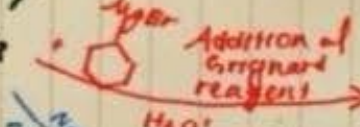 MgBr
+
Addition of
Grignard
reagent
H3O+